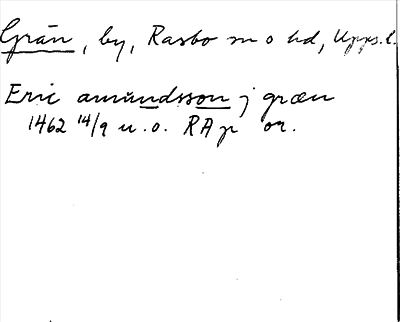 Grän, by, Rasbo sn o hd, Upps. l.
Eric amundsson j græn
1462 14/9 u.o. RAp or.